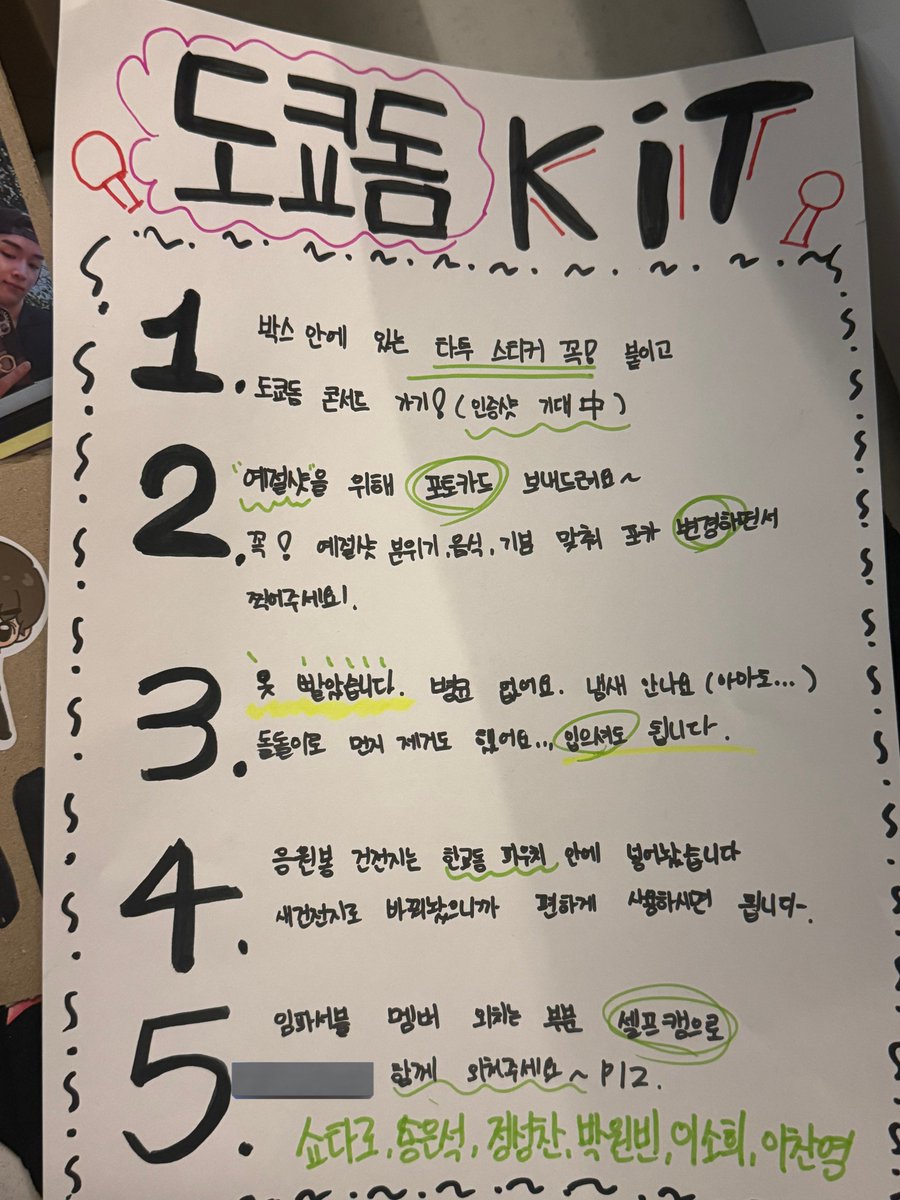 도쿄돔 KiT
1. 박스 안에 있는 타투 스티커 꼭! 붙이고
도쿄돔 콘서트 가기! (인증샷 기대中)
2. "예절샷"을 위해 포토카드 보내드려요~
꼭! 예절샷 분위기, 음식, 기분 맞춰 포카 변경하면서
찍어주세요!.
3. 옷 빨았습니다. 병균 없어요. 냄새 안나요 (아마도...)
돌돌이로 먼지 제거도 했어요... 입으셔도 됩니다.
4. 응원봉 건전지는 한교동 파우치 안에 넣어놨습니다
새건전지로 바꿔놨으니까 편하게 사용하시면 됩니다-.
5. 임파서블 멤버 외치는 부분 셀프캠으로
함께 외쳐주세요~ PlZ.
쇼타로, 송은석, 정성찬, 박원빈, 이소희, 이찬영